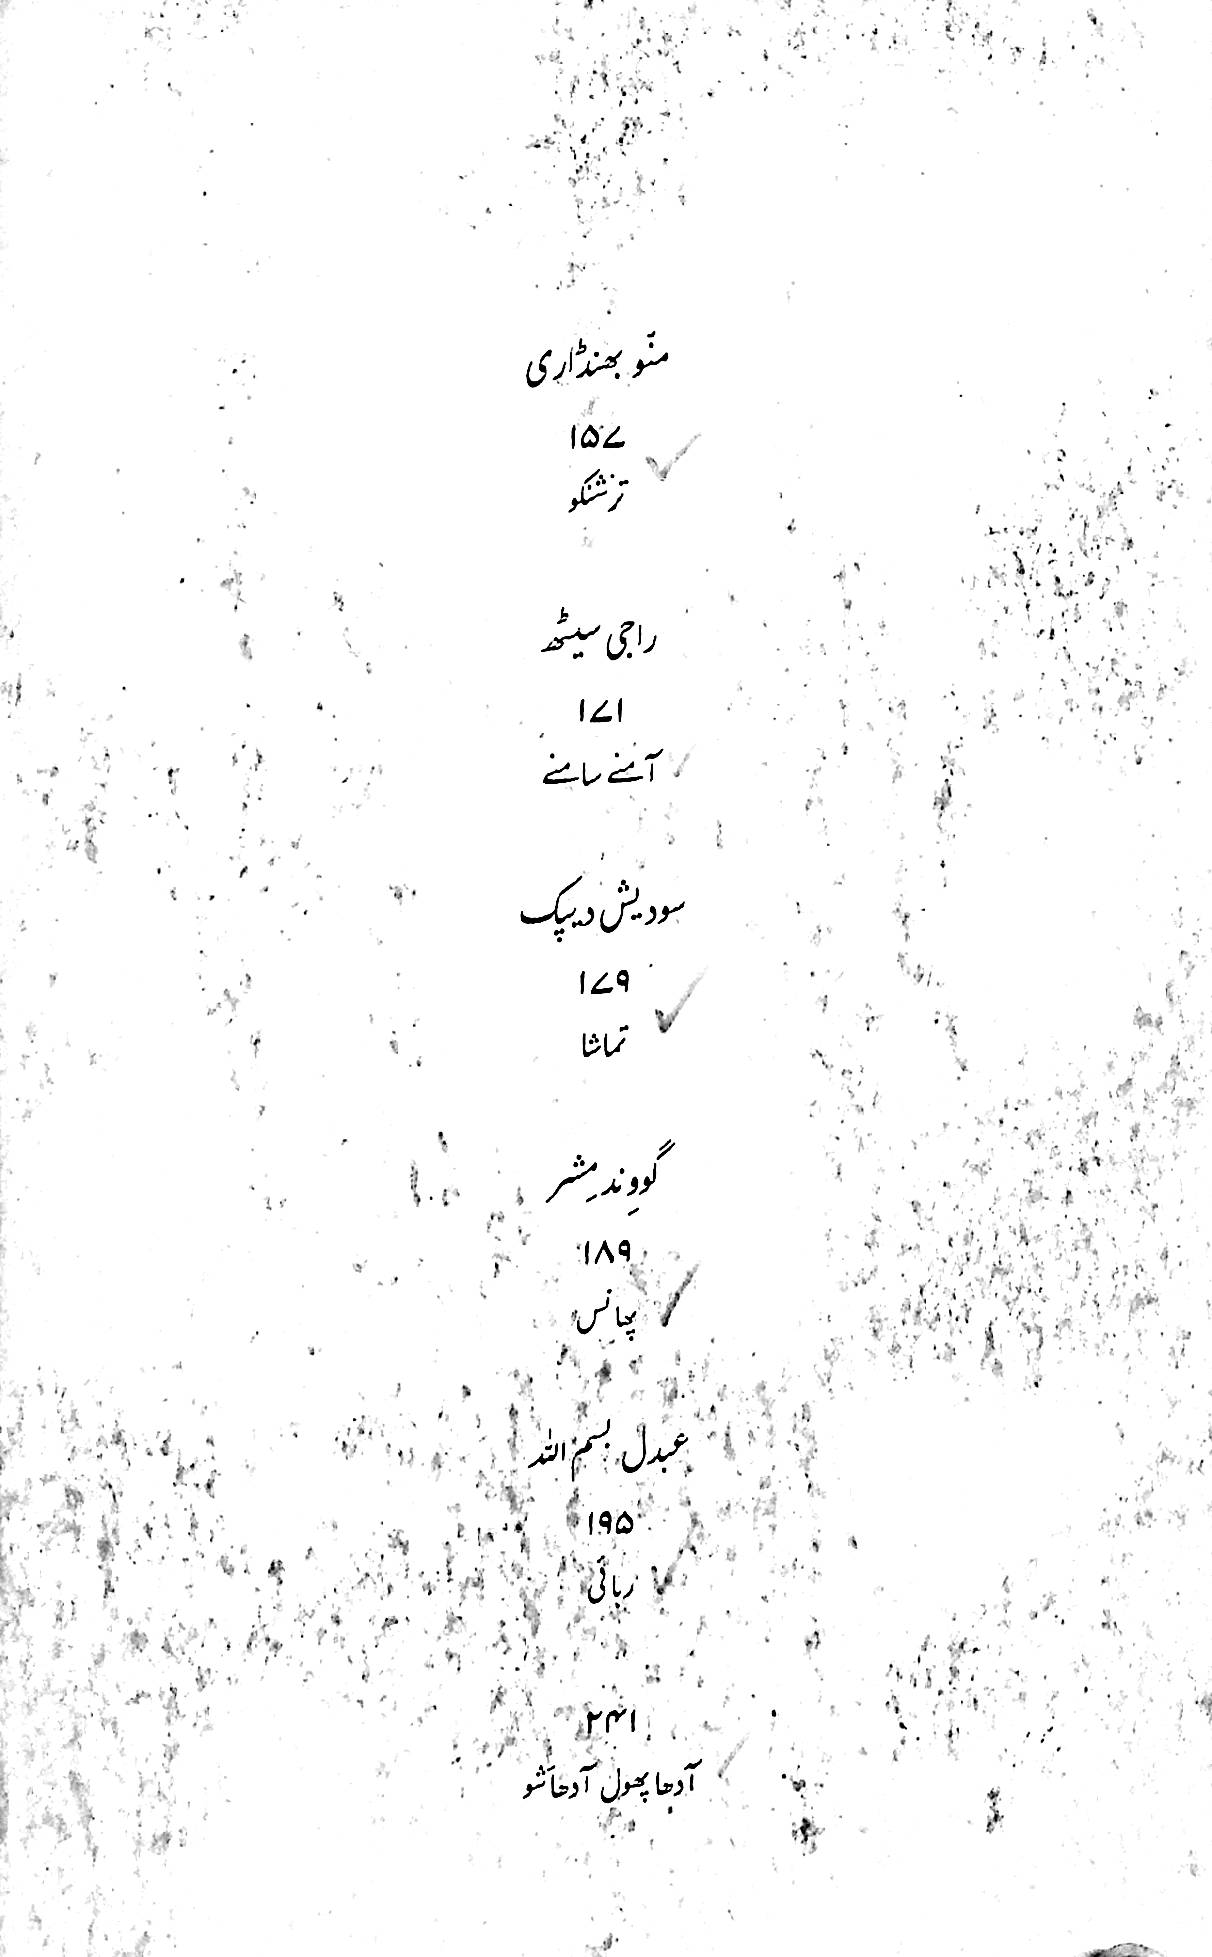 منّو بھنڈاری
۱۵۷
ترشنکو
راجی سیٹھ
۱۷۱
آمنے سامنے
سودیش دیپک
۱۷۹
تماشا
گووِند مِشر
۱۸۹
پھانس
عبدل بسم اللہ
۱۹۵
رہائی
۲۴۱
آدھا پھول آدھا شَو